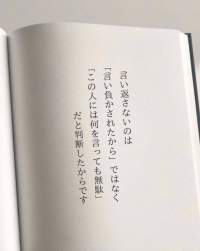 言い返さないのは
「言い負かされたから」ではなく
「この人には何を言っても無駄」
だと判断したからです